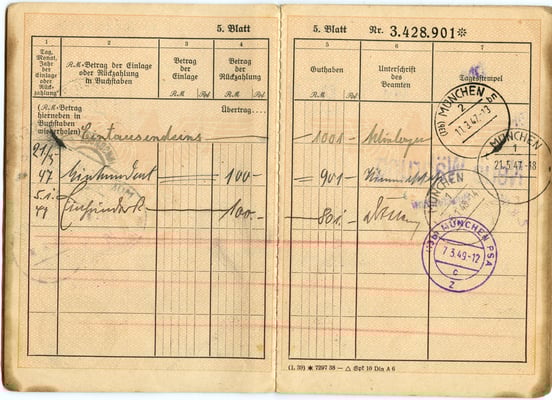 5. Blatt
5. Blatt Nr. 3.428.901*
1 2 3 4 5 6 7
Tag, Monat, Jahr der Einlage oder Rückzahlung
RM-Betrag der Einlage oder Rückzahlung in Buchstaben
Betrag der Einlage
RM Rpf
Betrag der Rückzahlung
RM Rpf
Guthaben
RM Rpf
Unterschrift des Beamten
Tagesstempel
(RM-Betrag hierneben in Buchstaben wiederholen)
Übertrag....
Eintausendeins
1001.-
21/5 47 Einhundert 100.- 901.-
5.1. 49 Einhundert 100.- 801.-
(13b) MÜNCHEN 2 bn
11.3.47.-13
MÜNCHEN 1
21.5.47.-18
MÜNCHEN
(13b) MÜNCHEN PSA
7.3.49-12
c
2
(1. 39) * 7297 38 — △ Spt 10 Din A 6